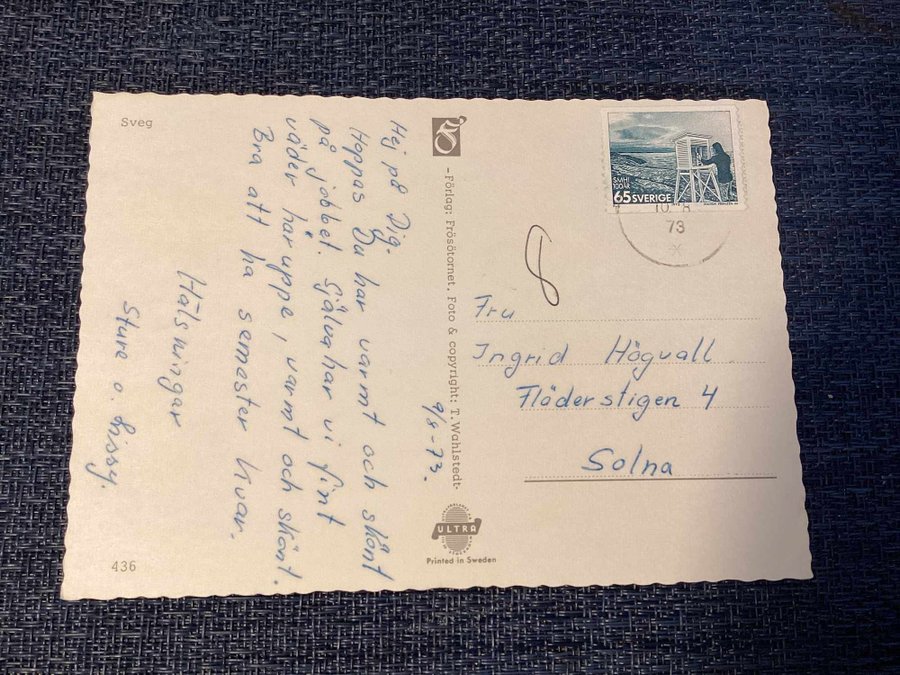 Sveg
9/8-73.
Hej på Dig.
Hoppas Du har varmt och skönt
på jobbet. Själva har vi fint
väder här uppe, varmt och skönt.
Bra att ha semester kvar.
Hälsningar
Sture o. Sissy.
436
- Förlag: Frösötornet. Foto & copyright: T. Wahlstedt-
ULTRA
Printed in Sweden
SMHI
100 ÅR
65 SVERIGE
10. 8
73
Fru
Ingrid Högvall
Fläderstigen 4
Solna